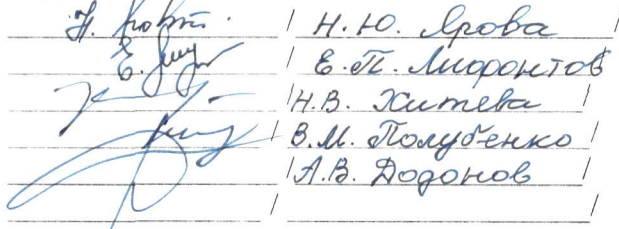 / Н. Ю. Ярова /
/ Е. П. Лифонтов /
/ Н. В. Хитева /
/ В. М. Полубенко /
/ А. В. Додонов /
/ /